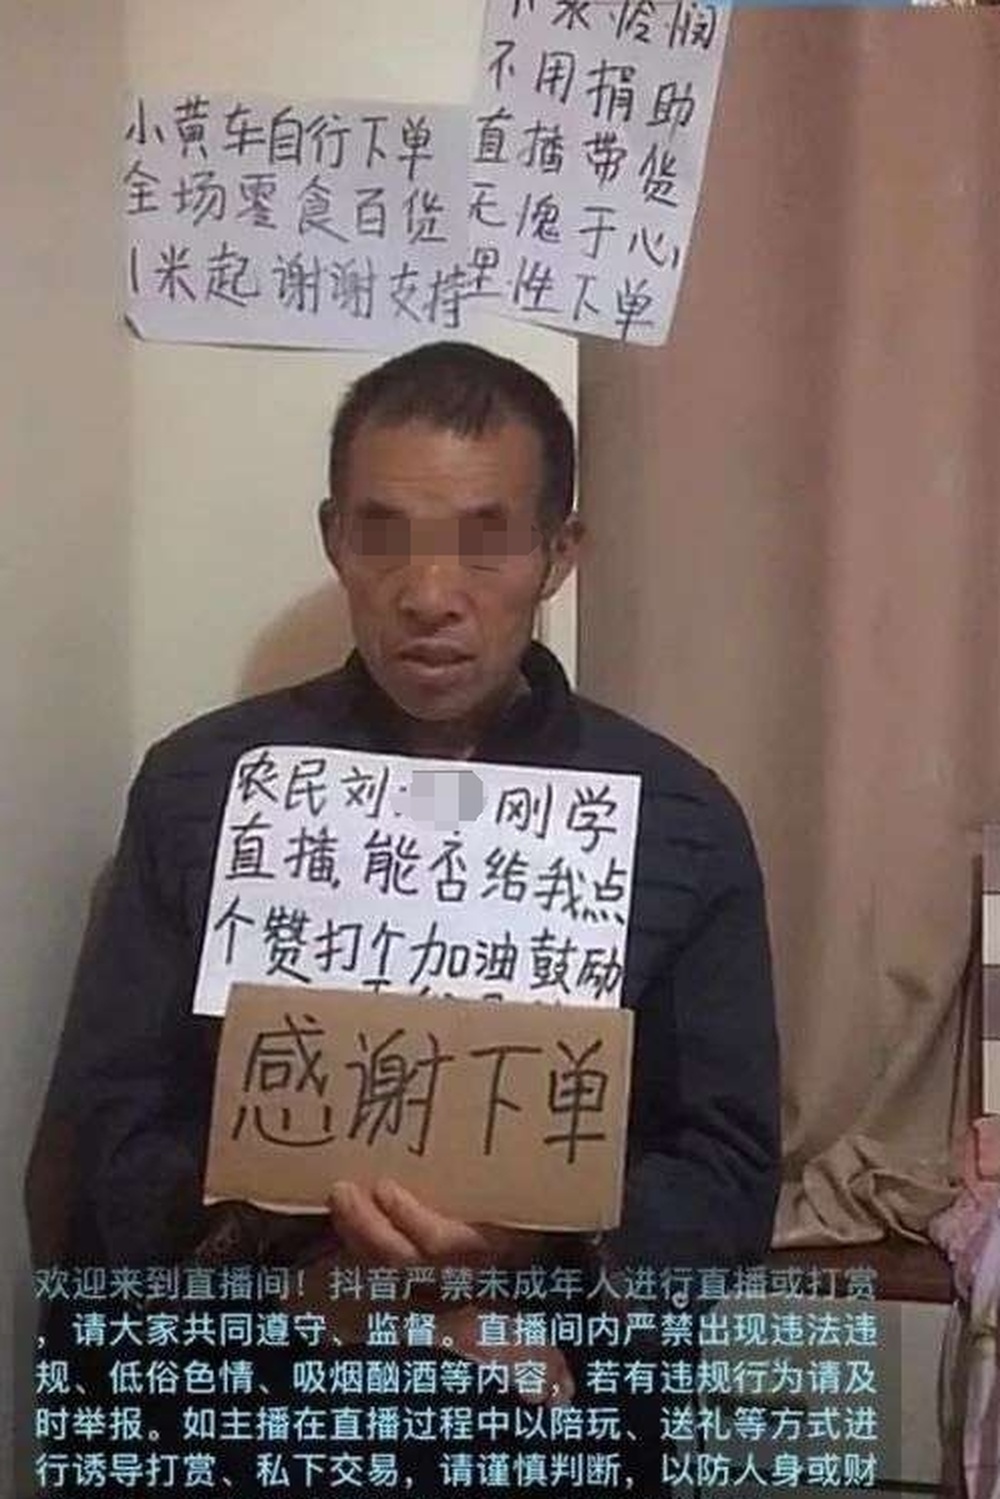 小黄车自行下单
全场零食百货
1米起谢谢支持
不求怜悯
不用捐助
直播带货
无愧于心
理性下单
农民刘 刚学
直播,能否给我点
个赞打个加油鼓励
感谢下单
欢迎来到直播间！抖音严禁未成年人进行直播或打赏
，请大家共同遵守、监督。直播间内严禁出现违法违
规、低俗色情、吸烟酗酒等内容，若有违规行为请及
时举报。如主播在直播过程中以陪玩、送礼等方式进
行诱导打赏、私下交易，请谨慎判断，以防人身或财